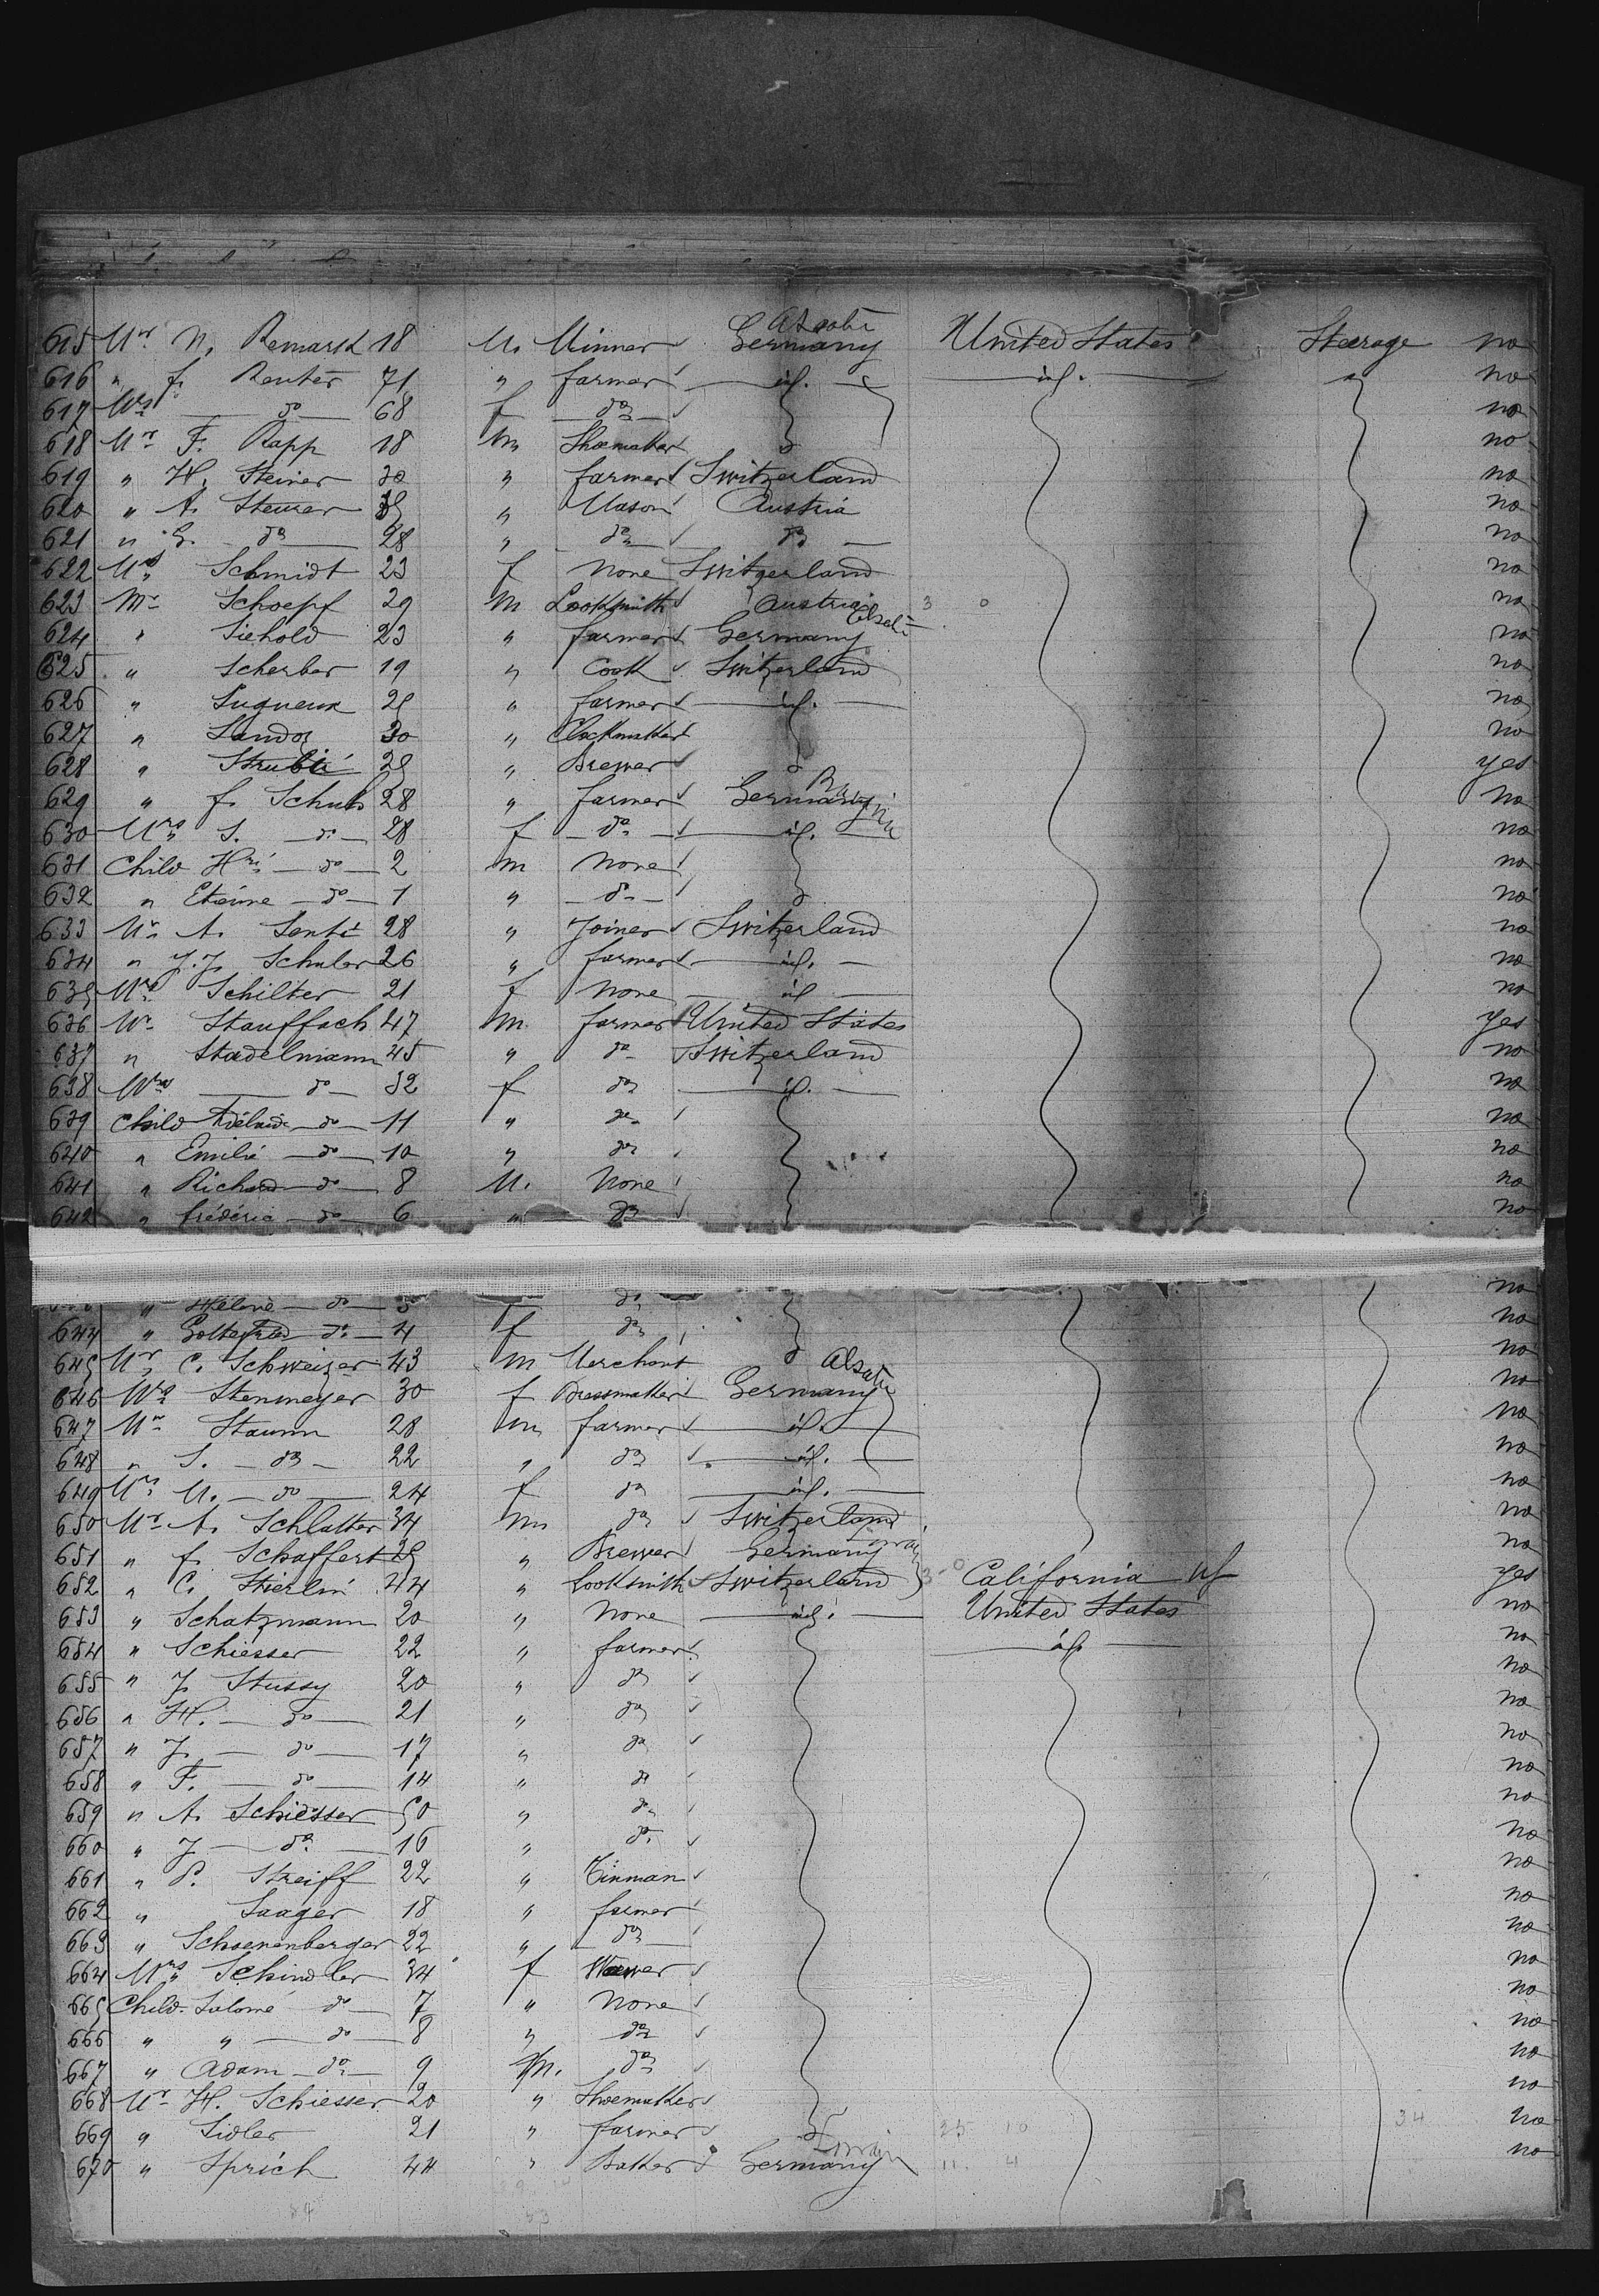 615 Mr N. Remark 18 M. Minner Germany Alsatie United States Steerage no
616 " f. Reuter 71 " farmer id. id. " no
617 Mrs do 68 f do no
618 Mr F. Rapp 18 m Shoemaker no
619 " H. Steiner 30 " farmer Switzerland no
620 " A. Steurer " Mason Austria no
621 " G. do 28 " do do no
622 Mrs Schmidt 23 f none Switzerland no
623 Mr Schoepf 29 m Locksmith Austria 3 0 no
624 " Siehold 23 " farmer Germany no
625 " Scherber 19 " Cook Switzerland no
626 " Suqueux 25 " farmer id. no
627 " Sandoz 30 " Clockmaker no
628 " 25 " Brewer yes
629 " f. Schuh 28 " farmer Germany Bavaria no
630 Mrs S. do 28 f do id. no
631 Child Hri do 2 m none no
632 " Etienne do 1 " do no
633 Mr A. Senti 28 " Joiner Switzerland no
634 " J.J. Schuler 26 " farmer id. no
635 Mrs Schilter 21 f none id no
636 Mr Stauffach 47 m. farmer United States yes
637 " Stadelmann 45 " do Switzerland no
638 Mrs do 32 f do id. no
639 Child Adélaide do 11 " do no
640 " Emilie do 10 " do no
641 " Richard do 8 M. None no
642 " frédéric do 6 " do no
" Hélène do 5 do no
644 " Gottefried do 4 f do no
645 Mr C. Schweizer 43 m Merchant no
646 Mrs Stenmeyer 30 f Dressmaker Germany Alsatie no
647 Mr Staumm 28 m farmer id. no
648 " S. do 22 " do id. no
649 Mrs M. do 24 f do id. no
650 Mr A. Schlatter 34 m do Switzerland no
651 " f. Schaffert 25 " Brewer Germany no
652 " C. Stierlin 44 " Locksmith Switzerland 3 0 California yes
653 " Schatzmann 20 " None id. United States no
654 " Schiesser 22 " farmer id. no
655 " J. Stussy 20 " do no
656 " H. do 21 " do no
657 " J. do 17 " do no
658 " F. do 14 " do no
659 " A. Schiesser 50 " do no
660 " J do 16 " do no
661 " P. Streiff 22 " Tinman no
662 " Saager 18 " farmer no
663 " Schoenenberger 22 " do no
664 Mrs Schindler 34 f no
665 Child Salomé do 7 " None no
666 " " do 8 " do no
667 " Adam do 9 m. do no
668 Mr H. Schiesser 20 " Shoemaker no
669 " Sidler 21 " farmer 25 10 34 no
670 " Sprich 44 " Baker Germany Lorrain 11 4 no